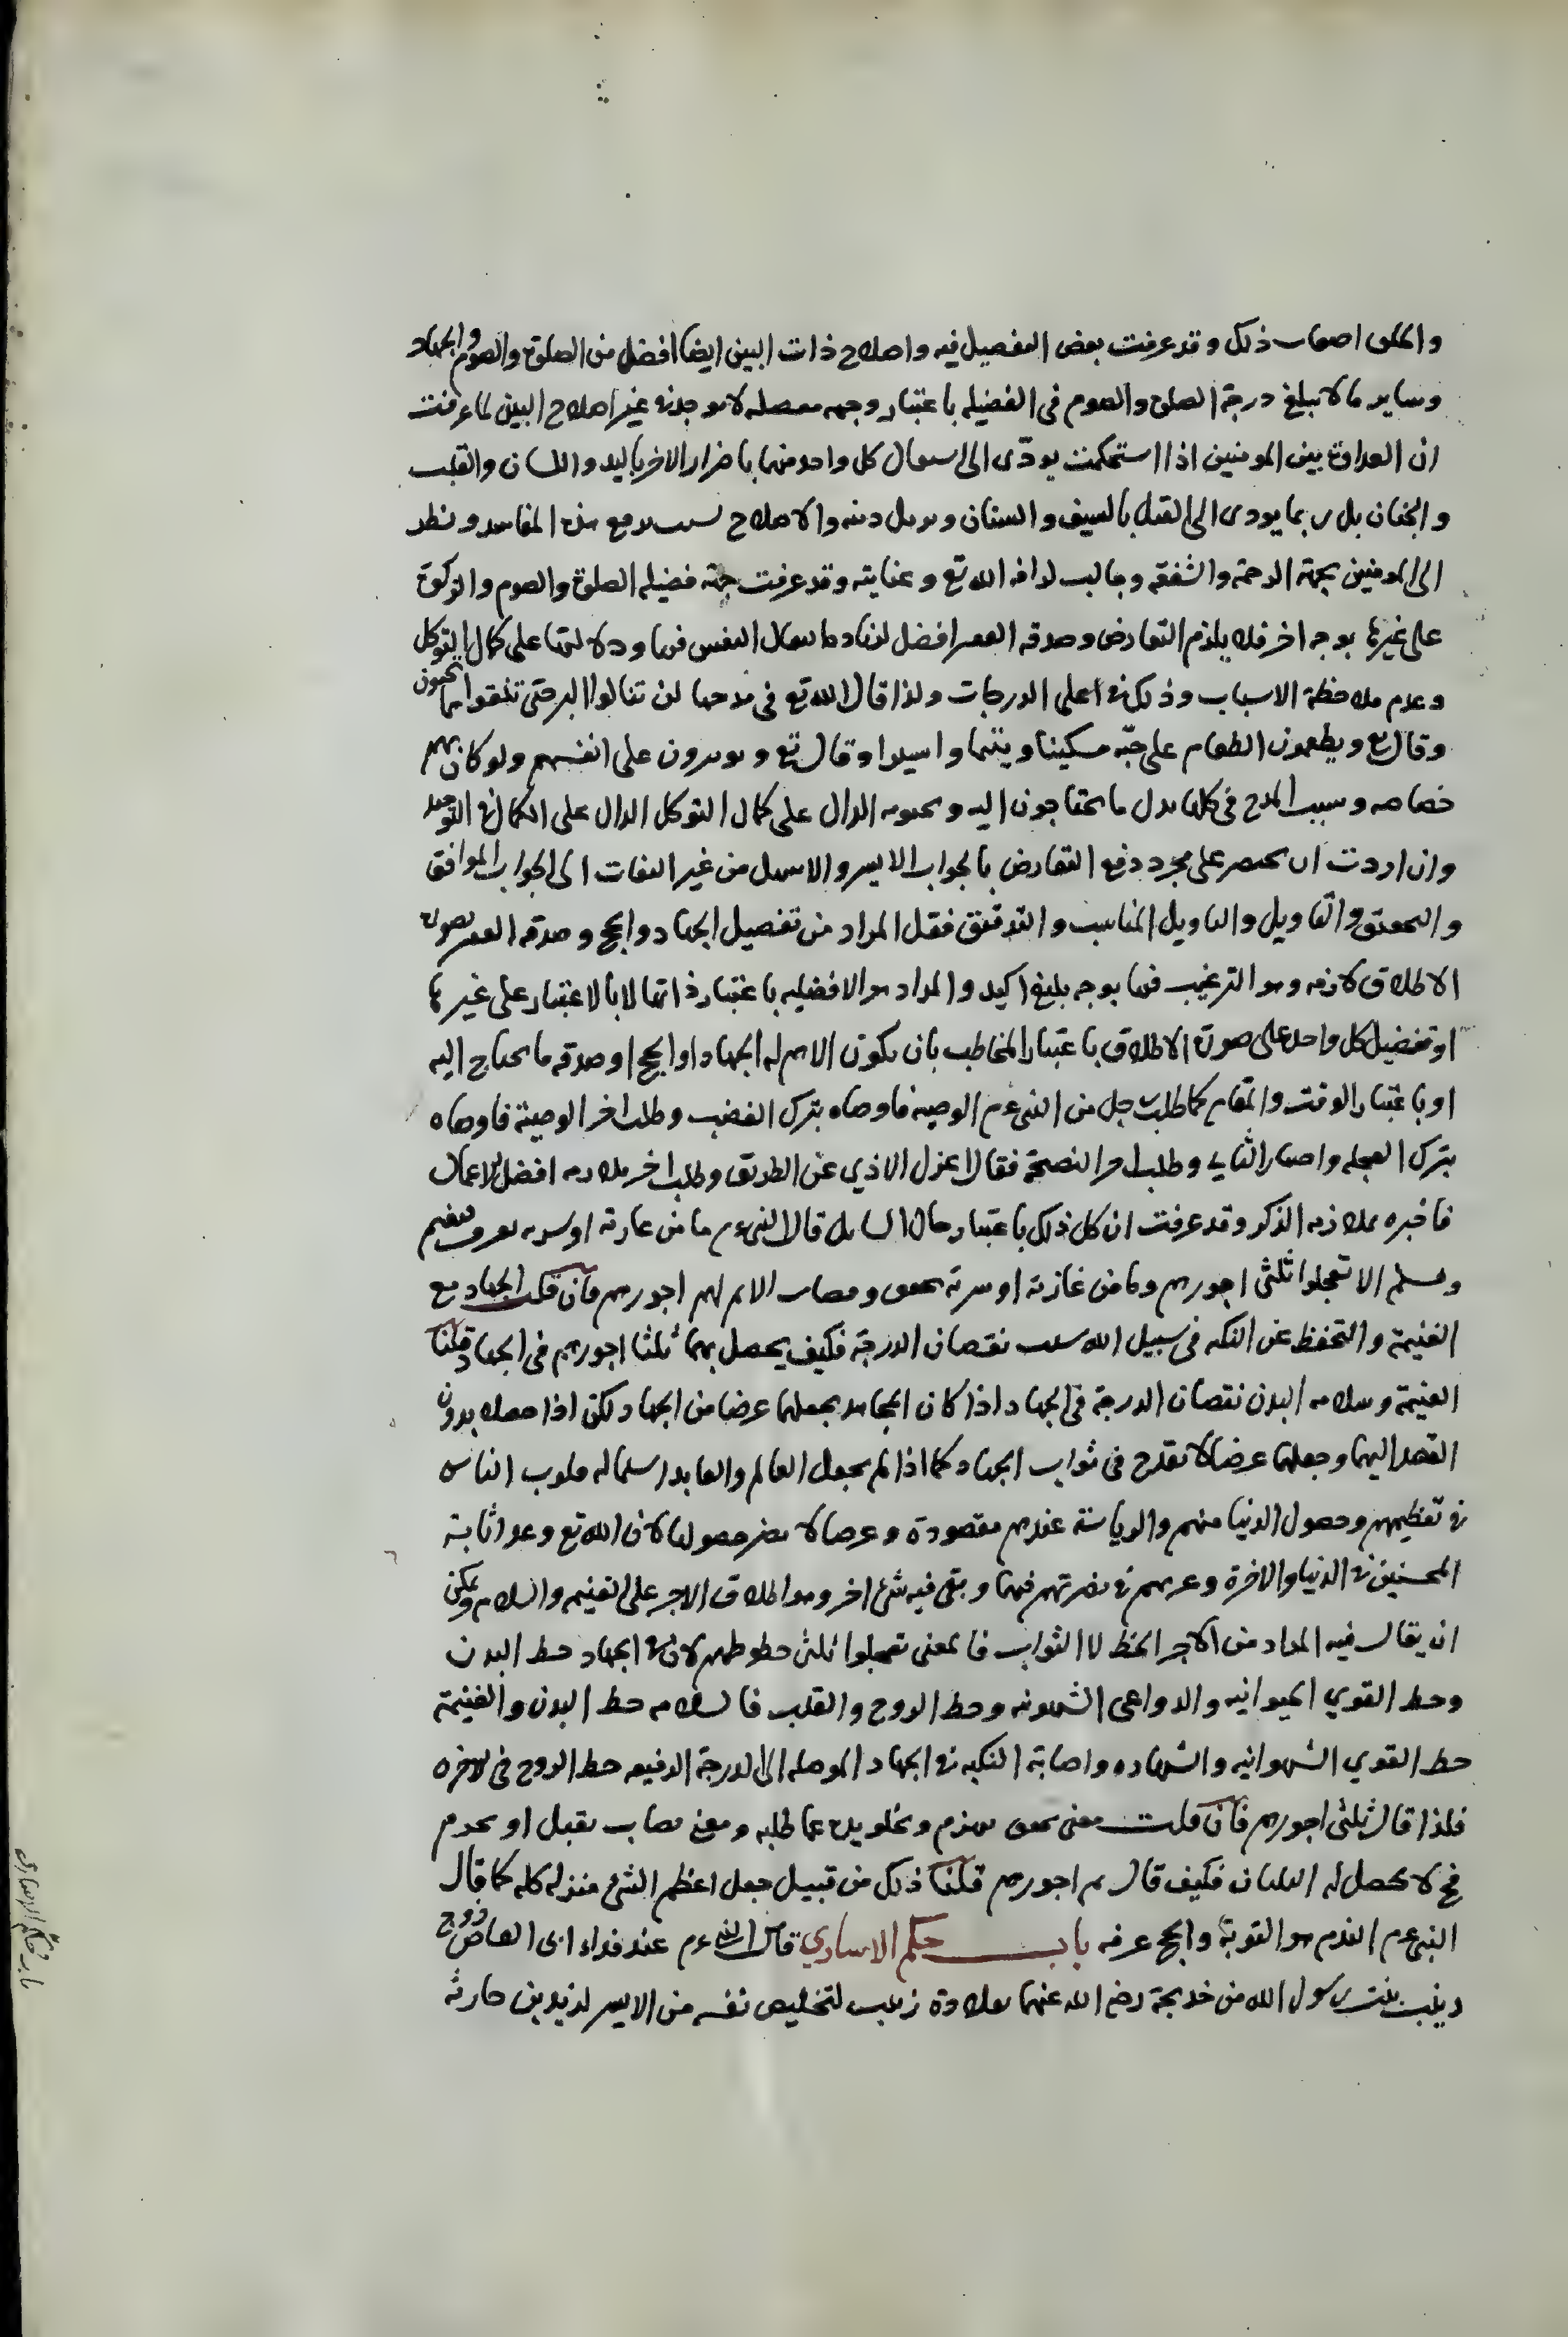 وقد عرفت بعض التفصيل فيه واصلاح ذات البين ايضا افضل من الصلوة والصوم والجهاد
وساير ما لا يبلغ درجة الصلوة والصوم فى الفضيله باعتبار وجهه غير اصلاح البين لما عرفت
ان العداوة بين المومنين اذا استحكمت يودّى الى كل واحد منهما باضرار الاخر باليد واللسان والقلب
والجنان بل ربما يودى الى القتل بالسيف والسنان والاصلاح هذه المفاسد ونظر
الى المومنين بجهة الرحمة والشفقه وجالب لرافه الله تع وعنايته وقد عرفت جهة فضيله الصلوة والصوم والزكوة
على غيرها بوجه اخر فلا يلزم التعارض وصدقه افضل النفس فيها ودلالتها على كمال التوكل
وعدم ملاحظة الاسباب وذلك فى اعلى الدرجات ولذا قال الله تع فى مدحها لن تنالوا البر حتى تنفقوا مما تحبون
وقال تع ويطعمون الطعام على حبّه مسكينا ويتيما واسيرا وقال تع ويوثرون على انفسهم ولو كان بهم
خصاصه وسبب المدح فى كلها بذل ما يحتاجون اليه الدال على كمال التوكل الدال على الكمال فى التوحيد
وان اردت ان على مجرد دفع التعارض بالجواب الايسر والاسهل من غير التفات الى الجواب الموافق
والتاويل المناسب والتدقيق فقل المراد من تفضيل الجهاد والحج وصدقه بصورة
الاطلاق لازمه وهو الترغيب فيها بوجه بليغ اكيد والمراد هو الافضليه باعتبار ذاتها لا بالاعتبار على غيرها
او تفضيل كل واحد على صورة الاطلاق باعتبار المخاطب بان يكون الاهم له الجهاد او الحج او صدقه ما يحتاج اليه
او باعتبار الوقت والمقام كما طلب رجل من النبى عم الوصيه فاوصاه بترك الغضب وطلب اخر الوصية فاوصاه
بترك العجله وطلب النصيحة فقال اعزل الاذي عن الطريق وطلب اخر ملازمه افضل الاعمال
فاخبره بملازمه الذكر وقد عرفت ان كل ذلك باعتبار حال السايل قال النبى عم ما من غازية او سرية
الا تعجلوا ثلثى اجورهم وما من غازية او سرية الا تم لهم اجورهم فان قلت الجهاد مع
الغنيمة والتحفظ عن النكبه فى سبيل الله نقصان الدرجة فكيف يحصل بهما ثلثا اجورهم فى الجهاد قلنا
الغنيمة وسلامه البدن نقصان الدرجة فى الجهاد اذا كان المجاهد يجعلهما عرضا من الجهاد لكن اذا حصلا بدون
القصد اليهما وجعلهما عرضا لا يقدح فى ثواب الجهاد كما اذا لم يجعل العالم والعابد قلوب الناس
فى تعظيمهم وحصول الدنيا منهم والرياسته عندهم مقصودة وعرضا لا يضر حصولها لان الله تع وعد اثابة
المحسنين فى الدنيا والاخرة فى نصرتهم فيهما وبقى فيه شئ اخر وهو اطلاق الاجر على الغنيمه والسلامه ويمكن
ان يقال فيه المراد من الاجر الحظ لا الثواب فالمعنى تعجلوا ثلثى حظوظهم لان فى الجهاد حظ البدن
وحظ القوي الحيوانيه والدواعى الشهوانيه وحظ الروح والقلب فالسلامه حظ البدن والغنيمة
حظ القوي الشهوانيه والشهاده واصابة النكبه فى الجهاد الموصله الى الدرجة الرفيعه حظ الروح فى الاخره
فلذا قال ثلثى اجورهم فان قلت معنى يهزم وتخلو يده عما طلبه ومعنى يصاب يقتل او يحرم
فح لا يحصل له الثلثان فكيف قال تم اجورهم قلنا ذلك من قبيل جعل اعظم الشئ منزله كله كما قال
النبى عم الندم هو التوبة والحج عرفه باب حكم الاسارى قال النبى عم عند فداء ابى العاص زوج
زينب بنت رسول الله من خديجة رضى الله عنهما بقلادة زينب لتخليص نفسه من الاسر لزيد بن حارثه
باب حكم الاسارى